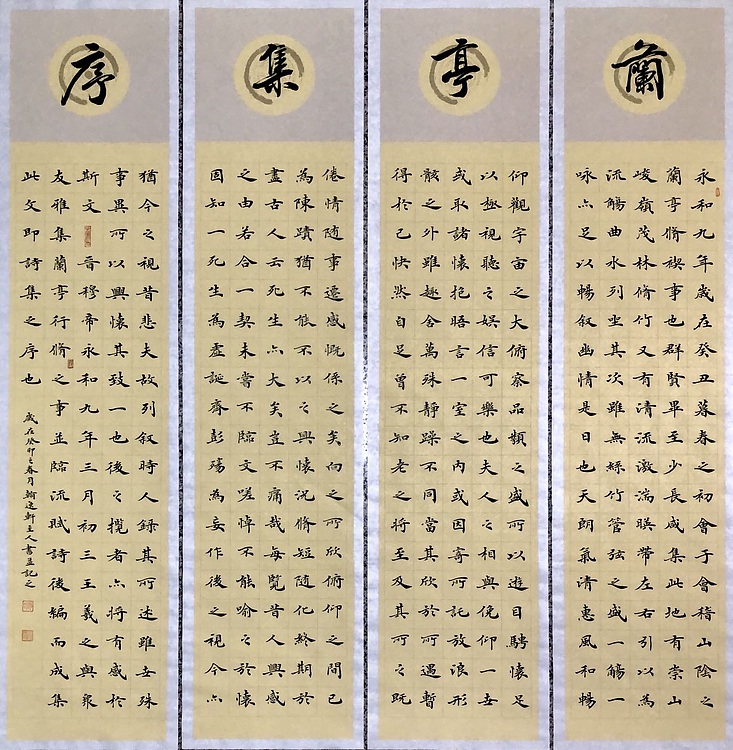 蘭
永和九年歲在癸丑暮春之初會于會稽山陰之
蘭亭脩禊事也群賢畢至少長咸集此地有崇山
峻嶺茂林脩竹又有清流激湍暎帶左右引以為
流觴曲水列坐其次雖無絲竹管弦之盛一觴一
咏亦足以暢叙幽情是日也天朗氣清惠風和暢
亭
仰觀宇宙之大俯察品類之盛所以遊目騁懷足
以極視聽之娛信可樂也夫人之相與俛仰一世
或取諸懷抱晤言一室之內或因寄所託放浪形
骸之外雖趣舍萬殊靜躁不同當其欣於所遇暫
得於己快然自足曾不知老之將至及其所之既
集
倦情隨事遷感慨係之矣向之所欣俯仰之間已
為陳蹟猶不能不以之興懷況脩短隨化終期於
盡古人云死生亦大矣豈不痛哉每覽昔人興感
之由若合一契未嘗不臨文嗟悼不能喻之於懷
固知一死生為虛誕齊彭殤為妄作後之視今亦
序
猶今之視昔悲夫故列叙時人錄其所述雖世殊
事異所以興懷其致一也後之攬者亦將有感於
斯文 晉穆帝永和九年三月初三王羲之與眾
友雅集蘭亭行脩之事並臨流賦詩後編而成集
此文即詩集之序也
歲在癸卯之春月翰逸軒主人書並記之